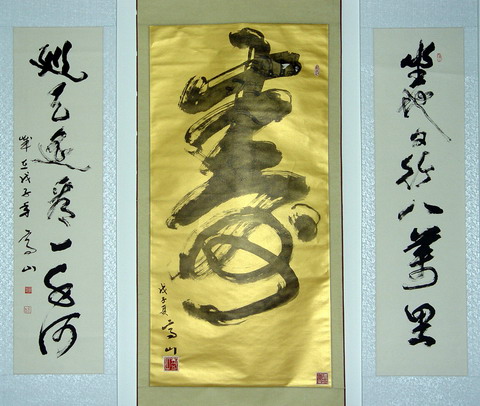 坐地日行八萬里
壽
戊子夏
高山
巡天遥看一千河
歲在戊子年
高山